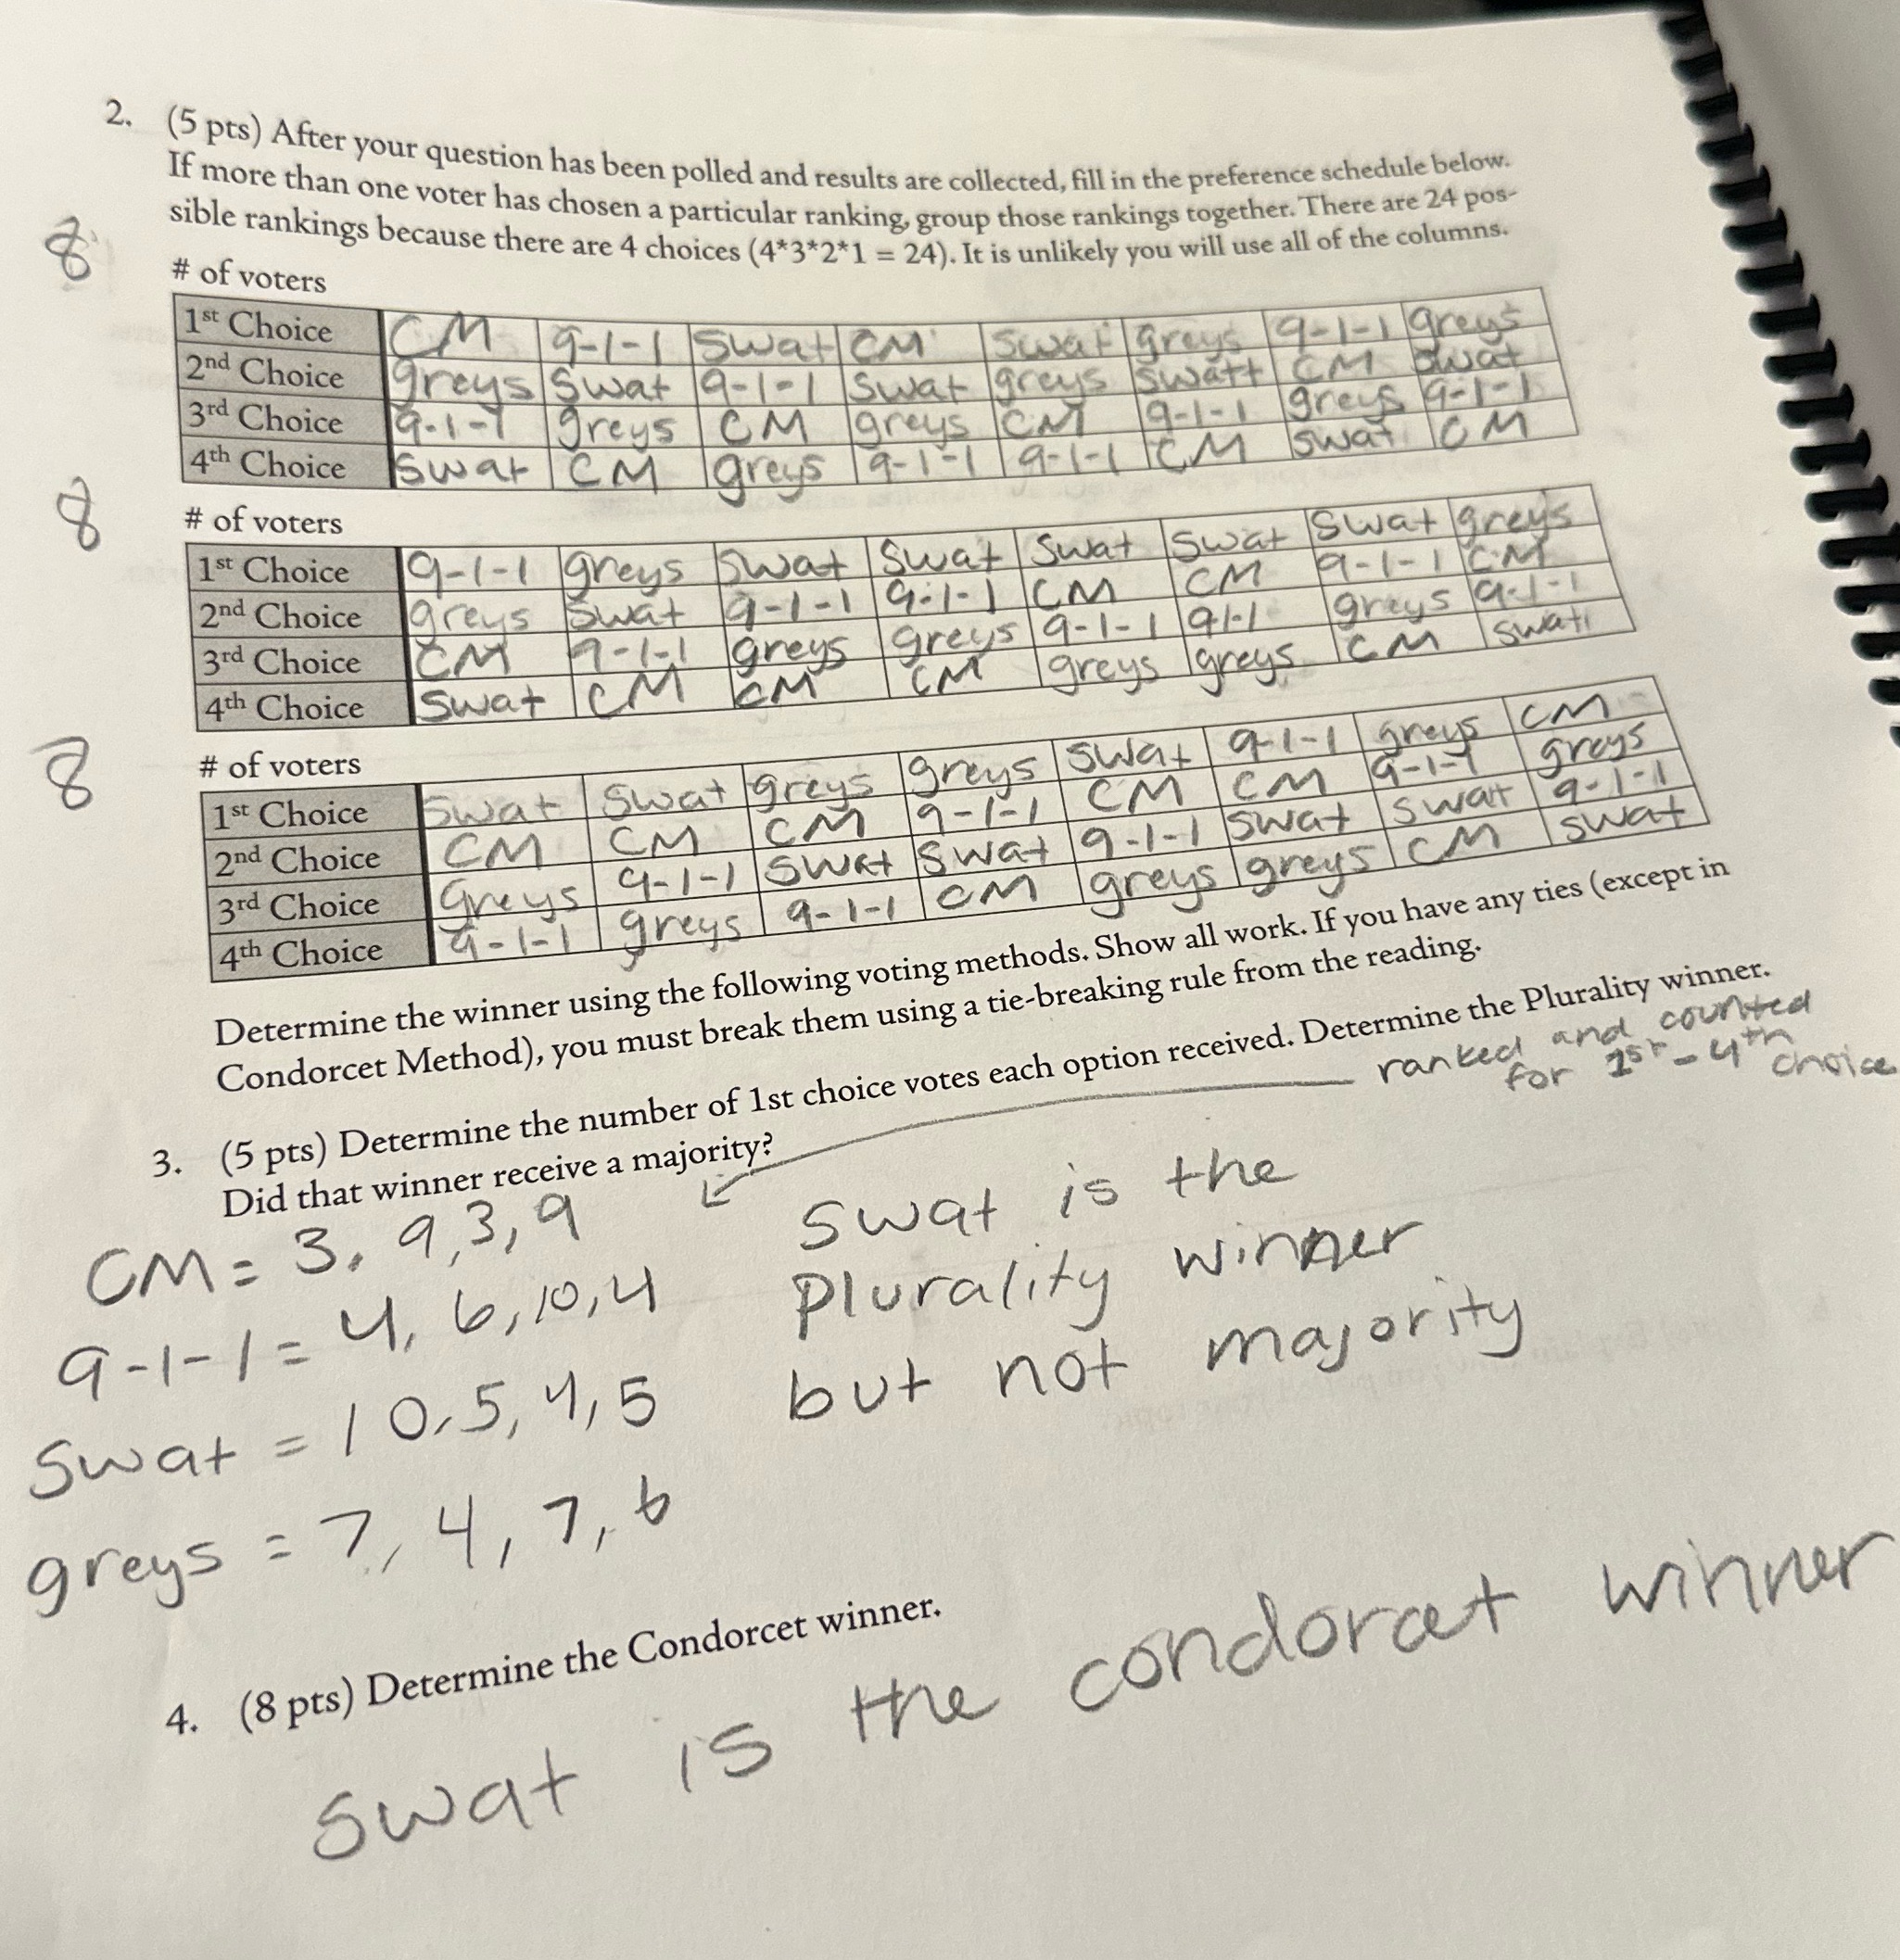 2. (5 pts) After your question has been polled and results are collected, fill in the preference schedule below.
If more than one voter has chosen a particular ranking, group those rankings together. There are 24 pos-
sible rankings because there are 4 choices (4*3*2*1 = 24). It is unlikely you will use all of the columns.
8
# of voters
1st Choice CM 9-1-1 Swat CM Swat greys 9-1-1 greys
2nd Choice greys Swat 9-1-1 Swat greys swatt CM swat
3rd Choice 9-1-1 greys CM greys CM 9-1-1 greys 9-1-1
4th Choice Swat CM greys 9-1-1 9-1-1 CM swat CM
8
# of voters
1st Choice 9-1-1 greys Swat Swat Swat Swat Swat greys
2nd Choice greys Swat 9-1-1 9-1-1 CM CM 9-1-1 CM
3rd Choice CM 9-1-1 greys greys 9-1-1 91-1 greys 9-1-1
4th Choice Swat CM CM CM greys greys CM swat
8
# of voters
1st Choice Swat Swat greys greys swat 9-1-1 greys CM
2nd Choice CM CM CM 9-1-1 CM CM 9-1-1 greys
3rd Choice Greys 9-1-1 Swat Swat 9-1-1 Swat Swat 9-1-1
4th Choice 9-1-1 greys 9-1-1 CM greys greys CM swat
Determine the winner using the following voting methods. Show all work. If you have any ties (except in
Condorcet Method), you must break them using a tie-breaking rule from the reading.
3. (5 pts) Determine the number of 1st choice votes each option received. Determine the Plurality winner.
Did that winner receive a majority?
ranked and counted
for 1st - 4th choice
CM = 3, 9, 3, 9
9-1-1 = 4, 6, 10, 4
Swat = 10, 5, 4, 5
greys = 7, 4, 7, 6
Swat is the
Plurality winner
but not majority
4. (8 pts) Determine the Condorcet winner.
Swat is the condorcet winner